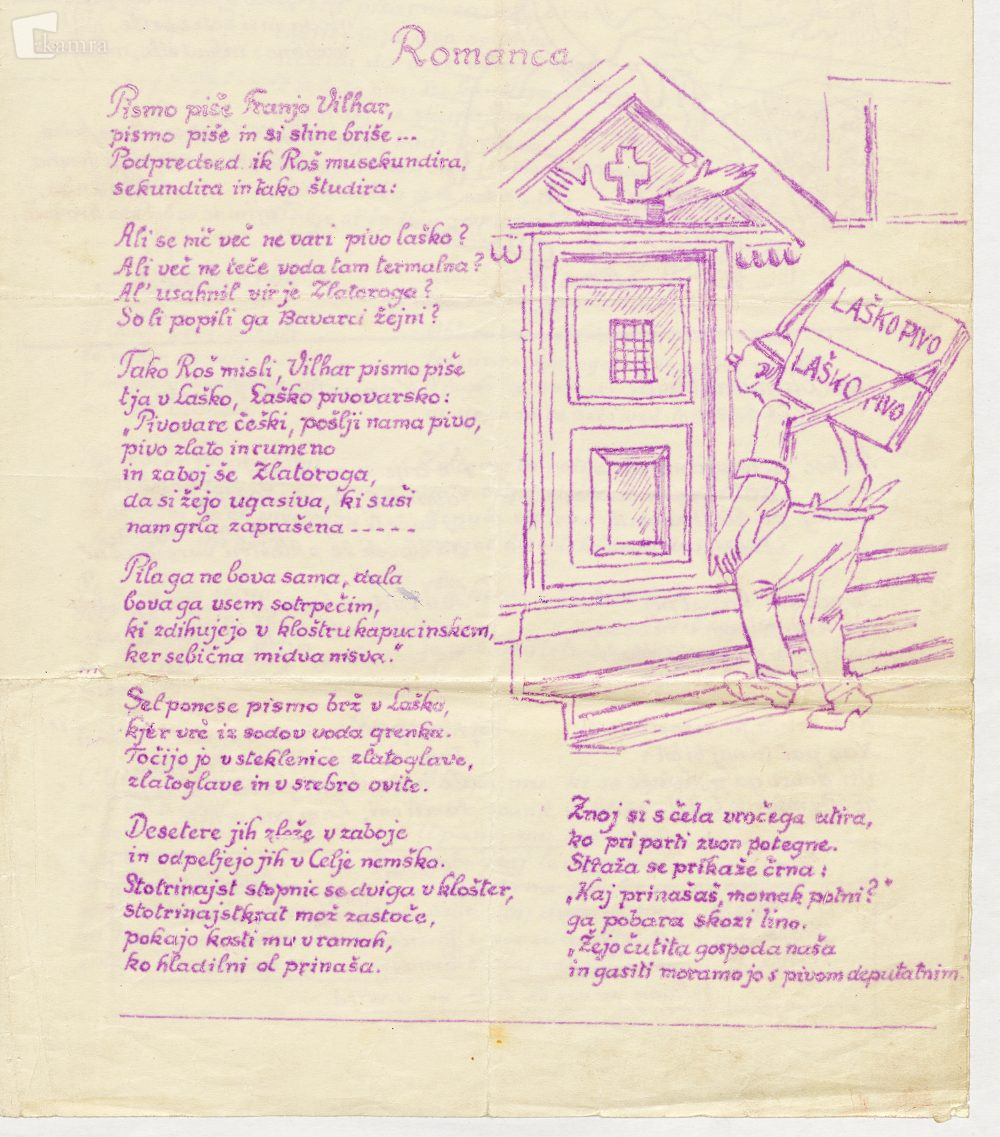 kamra
Romanca
Pismo piše Franjo Vilhar,
pismo piše in si sline briše...
Podpredsed ik Roš mu sekundira,
sekundira in tako študira:
Ali se nič več ne vari pivo laško?
Ali več ne teče voda tam termalna?
Al' usahnil vir je Zlatoroga?
So li popili ga Bavarci žejni?
Tako Roš misli, Vilhar pismo piše
tja v Laško, Laško pivovarsko:
„Pivovarc češki, pošlji nama pivo,
pivo zlato in rumeno
in zaboj še Zlatoroga,
da si žejo ugasiva, ki suši
nam grla zaprašena -----
Pila ga ne bova sama, dala
bova ga vsem sotrpečim,
ki zdihujejo v kloštru kapucinskem,
ker sebična midva nisva."
Sel ponese pismo brž v Laško,
kjer vrè iz sodov voda grenka.
Točijo jo v steklenice zlatoglave,
zlatoglave in v srebro ovite.
Desetere jih zlože v zaboje
in odpeljejo jih v Celje nemško.
Stotrinajst stopnic se dviga v klošter,
stotrinajstkrat mož zastoče,
pokajo kosti mu v ramah,
ko hladilni ol prinaša.
LAŠKO PIVO
LAŠKO PIVO
Znoj si s čela vročega utira,
ko pri porti zvon potegne.
Straža se prikaže črna:
„Kaj prinašaš, momak potni?"
ga pobara skozi lino.
„Žejo čutita gospoda naša
in gasiti moramo jo s pivom deputatnim.